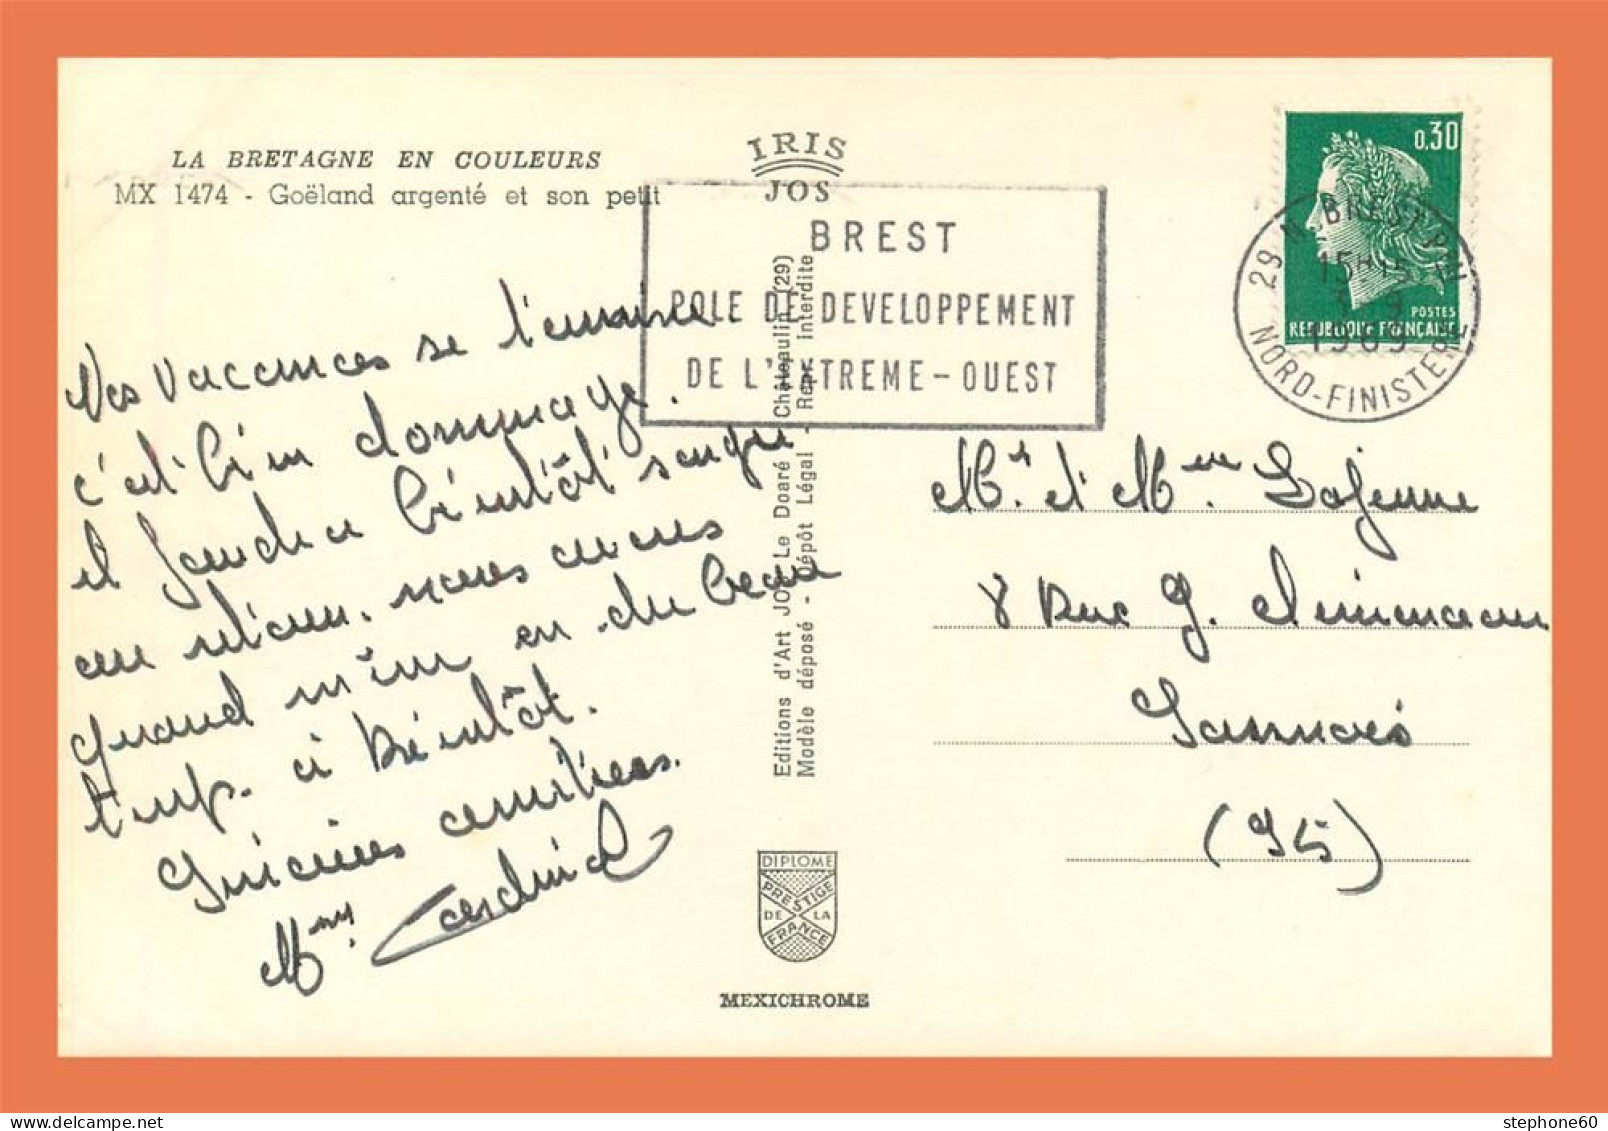 LA BRETAGNE EN COULEURS
MX 1474 - Goëland argenté et son petit
IRIS
JOS
BREST
POLE DE DEVELOPPEMENT
DE L'EXTREME-OUEST
0,30
POSTES
REPUBLIQUE FRANÇAISE
29 N. BREST
15H15
1969
NORD-FINISTERE
Nos vacances se
c'est bien dommage.
il faudra bientôt songer
au retour. nous avons
quand même eu du beau
temps. à bientôt.
Sincères amitiés.
Mme Cardinal
Editions d'Art JOS Le Doaré - Châteaulin (29)
Modèle déposé - Dépôt Légal - Repr. interdite
Mr et Mme Lajeune
8 Rue G. Clemenceau
Sannois
(95)
DIPLOME
PRESTIGE
DE LA
FRANCE
MEXICHROME
stephone60